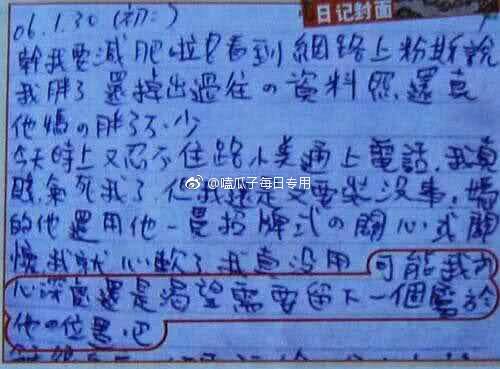 日记封面
06.1.30 (初二)
幹我要減肥啦 看到網路上粉斯說
我胖了 還掉出過往の資料照.還真
他媽の胖了不少
今天 上又忍不住 小美通上電話.我真
氣死我了 但我還是又要裝沒事.聽
@嗑瓜子每日专用
的他還用他一貫招牌式の關心或關
懷我就心軟了我真沒用 可能我內
心深處還是渴望需要留下一個屬於
他の位置吧